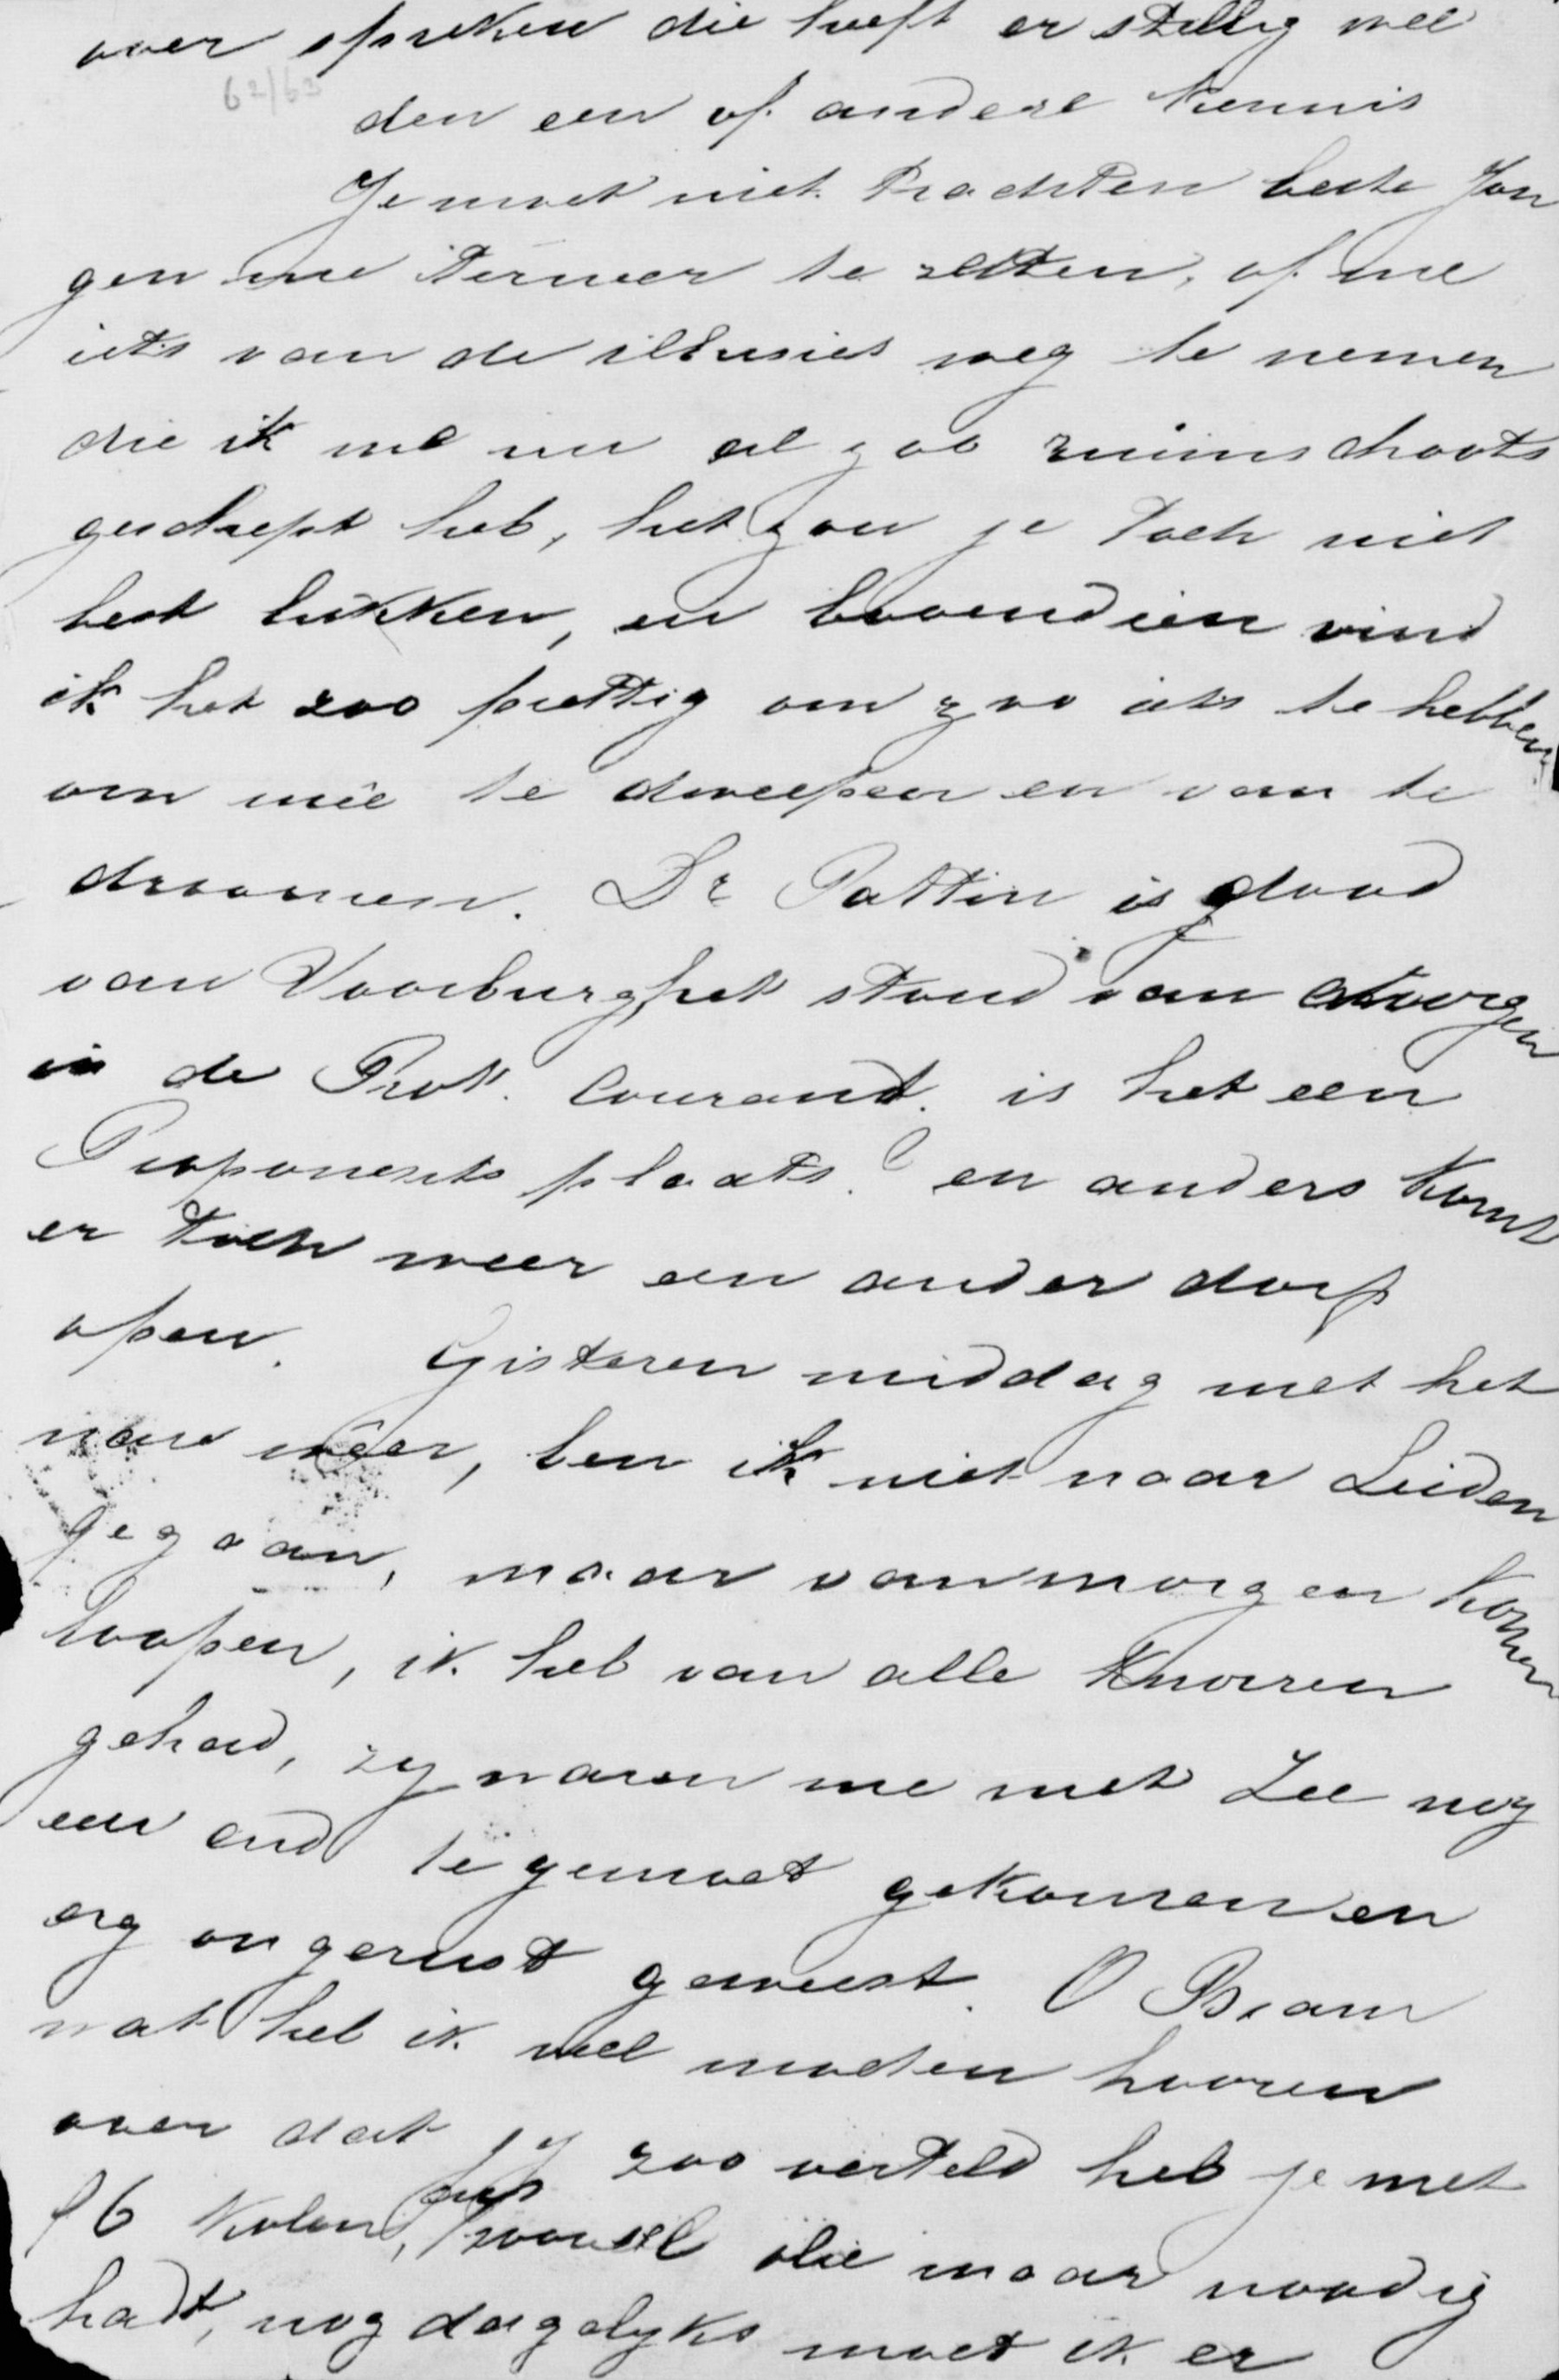 over spreken die heeft er stellig wel
62/63
den een of andere kennis
Je moet niet trachten beste Jon
gen me terneer te zetten, of me
iets van de illusies weg te nemen
die ik me nu al zoo ruimschoots
geschept heb, het zou je toch niet
best lukken, en bovendien vind
ik het zoo prettig om zoo iets te hebben
om meê te dweepen en van te
droomen. Dr Pattin is dood
van Voorburg, het stond van morgen
in de Prot. Courant. is het een
Proponents plaats? en anders komt
er toch weer een ander dorp
open. Gisteren middag met het
nare weer, ben ik niet naar Leiden
gegaan, maar van morgen komen
loopen, ik heb van alle knorren
gehad, zy waren me met Zee nog
een end te gemoet gekomen en
erg ongerust geweest. O Bram
wat heb ik wel moeten hooren
over dat jy zoo verteld heb je met
f6 kolen, zooveel olie maar noodig
hadt, nog dagelyks moet ik er